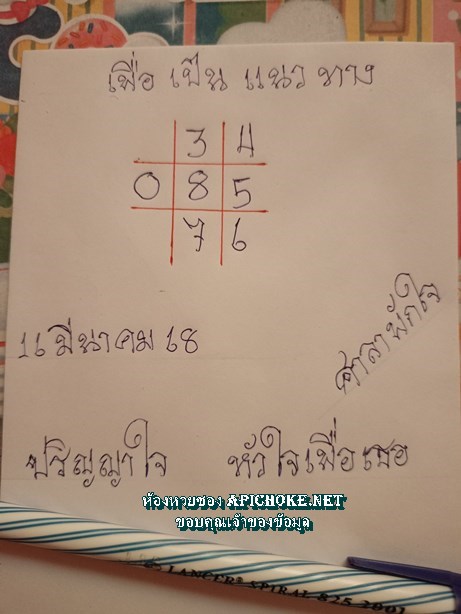 เพื่อ เป็น แนว ทาง
3 4
0 8 5
7 6
16 มีนาคม 68
ศาลาพักใจ
ปริญญาใจ หัวใจเพื่อเธอ
ห้องหวยซอง APICHOKE.NET
ขอบคุณเจ้าของข้อมูล
LANCER SPIRAL 825